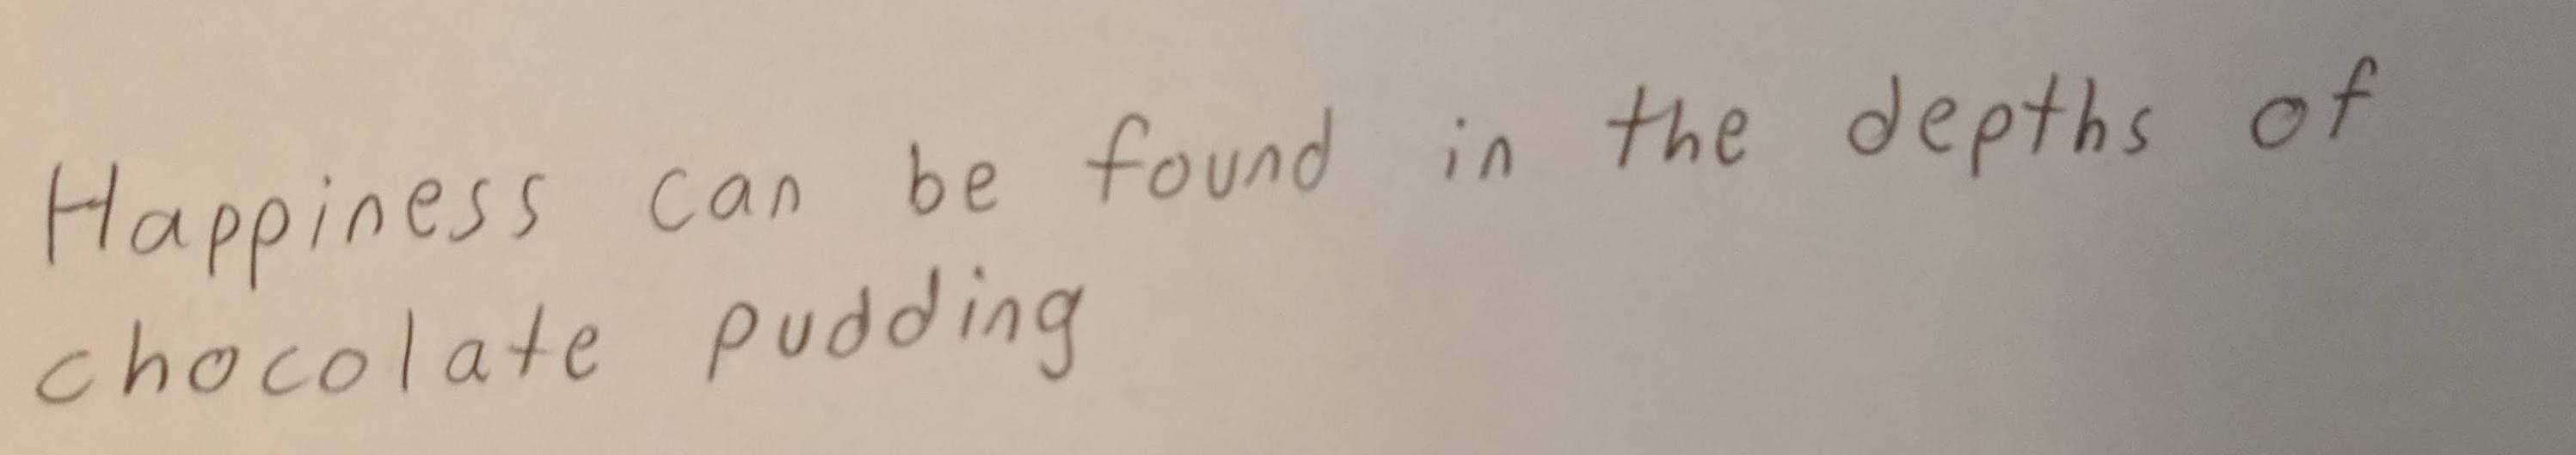 Happiness can be found in the depths of
chocolate pudding